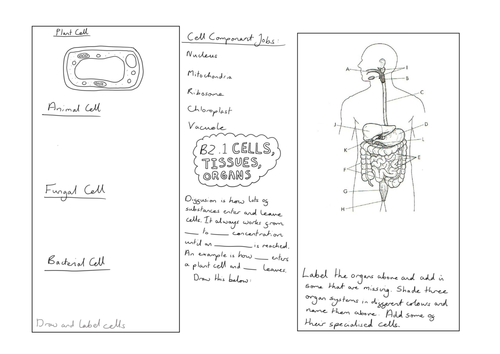 Plant Cell
Animal Cell
Fungal Cell
Bacterial Cell
Draw and label cells
Cell Component Jobs:
Nucleus
Mitochondria
Ribosome
Chloroplast
Vacuole
B2.1 CELLS,
TISSUES,
ORGANS
Diffusion is how lots of
substances enter and leave
cells. It always works from
___ to ___ concentration
until an ______ is reached.
An example is how ___ enters
a plant cell and ___ leaves.
Draw this below:
A
B
C
J
D
K
L
E
F
G
H
Label the organs above and add in
some that are missing. Shade three
organ systems in different colours and
name them above. Add some of
their specialised cells.